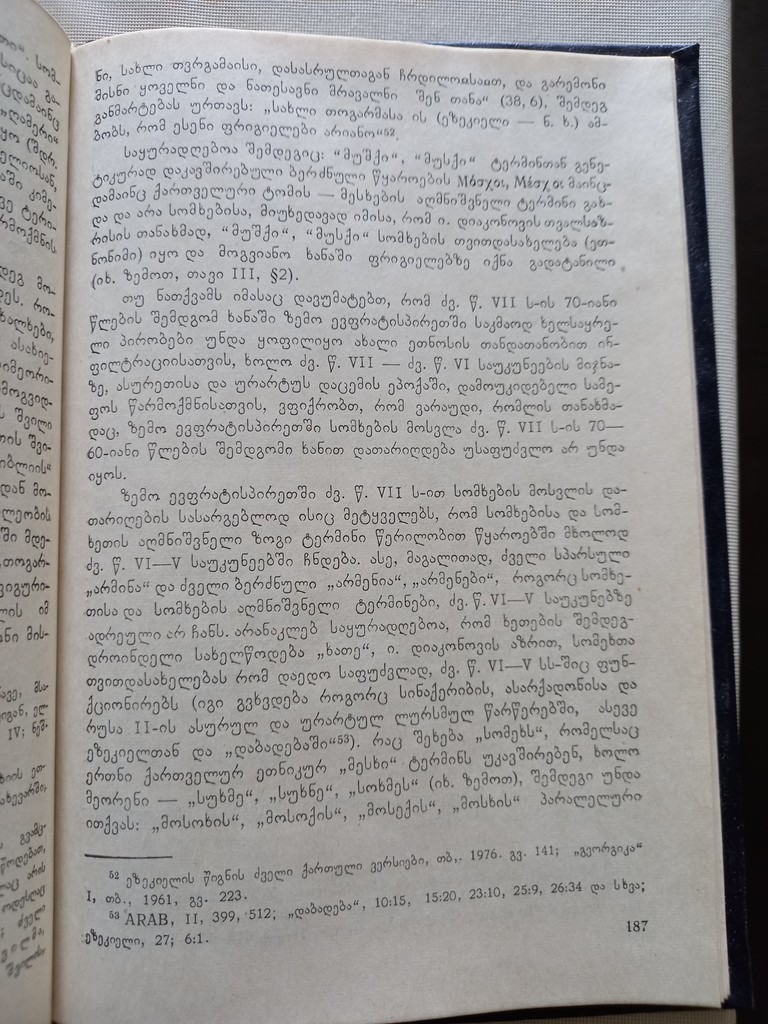 ნი, სახლი თჳრგამაისი, დასასრულთაგან ჩრდილოჲსაჲთ, და გარემონი
მისნი ყოველნი და ნათესავნი მრავალნი “შენ თანა“ (38, 6), შემდეგ
განმარტებას ურთავს: „სახლი თოგარმასა ის (ეზეკიელი — ნ. ხ.) ამ-
ბობს, რომ ესენი ფრიგიელები არიანო“52.
საყურადღებოა შემდეგიც: “მუშქი“, “მუსქი“ ტერმინთან გენე-
ტიკურად დაკავშირებული ბერძნული წყაროების Μόσχοι, Μέσχοι მაინც-
დამაინც ქართველური ტომის — მესხების აღმნიშვნელი ტერმინი გახ-
და და არა სომხებისა, მიუხედავად იმისა, რომ ი. დიაკონოვის თვალსაზ-
რისის თანახმად, “მუშქი“, “მუსქი“ სომხების თვითდასახელება (ეთ-
ნონიმი) იყო და მოგვიანო ხანაში ფრიგიელებზე იქნა გადატანილი
(იხ. ზემოთ, თავი III, §2).
თუ ნათქვამს იმასაც დავუმატებთ, რომ ძვ. წ. VII ს-ის 70-იანი
წლების შემდგომ ხანაში ზემო ევფრატისპირეთში საკმაოდ ხელსაყრე-
ლი პირობები უნდა ყოფილიყო ახალი ეთნოსის თანდათანობით ინ-
ფილტრაციისათვის, ხოლო ძვ. წ. VII — ძვ. წ. VI საუკუნეების მიჯნა-
ზე, ასურეთისა და ურარტუს დაცემის ეპოქაში, დამოუკიდებელი სამე-
ფოს წარმოქმნისათვის, ვფიქრობთ, რომ ვარაუდი, რომლის თანახმა-
დაც, ზემო ევფრატისპირეთში სომხების მოსვლა ძვ. წ. VII ს-ის 70—
60-იანი წლების შემდგომი ხანით დათარიღდება უსაფუძვლო არ უნდა
იყოს.
ზემო ევფრატისპირეთში ძვ. წ. VII ს-ით სომხების მოსვლის და-
თარიღების სასარგებლოდ ისიც მეტყველებს, რომ სომხებისა და სომ-
ხეთის აღმნიშვნელი ზოგი ტერმინი წერილობით წყაროებში მხოლოდ
ძვ. წ. VI—V საუკუნეებში ჩნდება. ასე, მაგალითად, ძველი სპარსული
„არმინა“ და ძველი ბერძნული „არმენია“, „არმენები“, როგორც სომხე-
თისა და სომხების აღმნიშვნელი ტერმინები, ძვ. წ. VI—V საუკუნებზე
ადრეული არ ჩანს. არანაკლებ საყურადღებოა, რომ ხეთების შემდეგ-
დროინდელი სახელწოდება „ხათე“, ი. დიაკონოვის აზრით, სომეხთა
თვითდასახელებას რომ დაედო საფუძვლად, ძვ. წ. VI—V სს-შიც ფუნ-
ქციონირებს (იგი გვხვდება როგორც სინაქერიბის, ასარქადონისა და
რუსა II-ის ასურულ და ურარტულ ლურსმულ წარწერებში, ასევე
ეზეკიელთან და „დაბადებაში“53). რაც შეხება „სომეხს“, რომელსაც
ერთნი ქართველურ ეთნიკურ „მესხი“ ტერმინს უკავშირებენ, ხოლო
მეორენი — „სუხმე“, „სუხნე“, „სოხმეს“ (იხ. ზემოთ), შემდეგი უნდა
ითქვას: „მოსოხის“, „მოსოქის“, „მოსექის“, „მოსხის“ პარალელური
52 ეზეკიელის წიგნის ძველი ქართული ვერსიები, თბ,. 1976. გვ. 141; „გეორგიკა“
I, თბ., 1961, გვ. 223.
53 ARAB, II, 399, 512; „დაბადება“, 10:15, 15:20, 23:10, 25:9, 26:34 და სხვა;
ეზეკიელი, 27; 6:1.
187